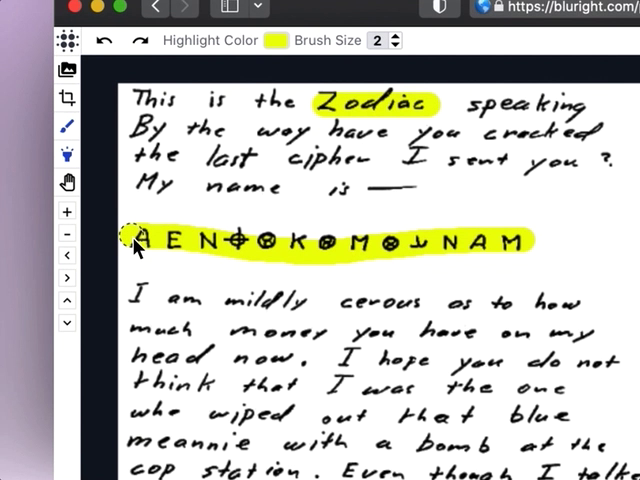 https://bluright.com/
Highlight Color Brush Size 2
This is the Zodiac speaking
By the way have you cracked
the last cipher I sent you?
My name is —
A E N ⌖ ⊗ K ⊗ M ⊗ ⅃ N A M
I am mildly cerous as to how
much money you have on my
head now. I hope you do not
think that I was the one
who wiped out that blue
meannie with a bomb at the
cop station. Even though I talke